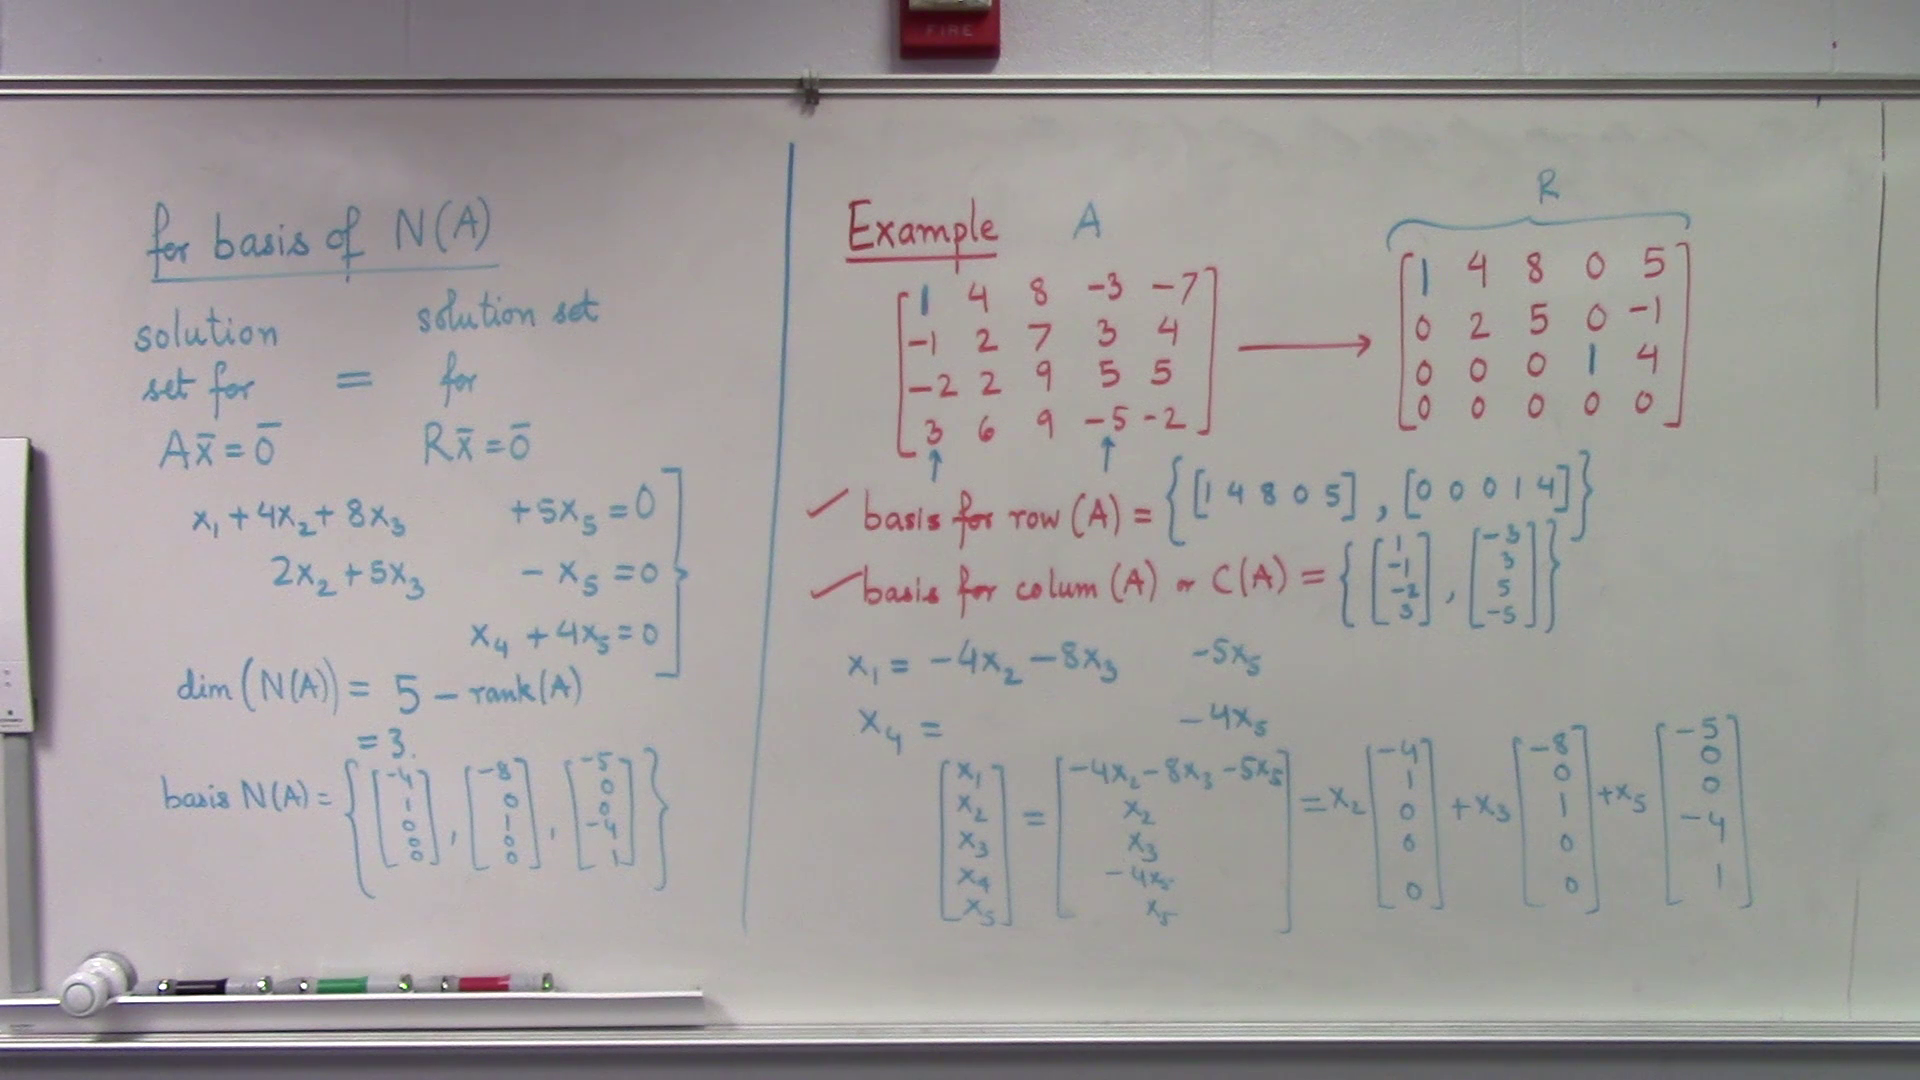 FIRE
for basis of N(A)
solution set for Ax̄ = 0̄ = solution set for Rx̄ = 0̄
x₁ + 4x₂ + 8x₃ + 5x₅ = 0
2x₂ + 5x₃ - x₅ = 0
x₄ + 4x₅ = 0
dim(N(A)) = 5 - rank(A)
= 3.
basis N(A) = {[-4 1 0 0 0], [-8 0 1 0 0], [-5 0 0 -4 1]}
Example A
R
1 4 8 -3 -7 → 1 4 8 0 5
-1 2 7 3 4 0 2 5 0 -1
-2 2 9 5 5 0 0 0 1 4
3 6 9 -5 -2 0 0 0 0 0
↑ ↑
✓ basis for row (A) = {[1 4 8 0 5], [0 0 0 1 4]}
✓ basis for colum (A) or C(A) = {[1 -1 -2 3], [-3 3 5 -5]}
x₁ = -4x₂ - 8x₃ -5x₅
x₄ = -4x₅
[x₁ x₂ x₃ x₄ x₅] = [-4x₂ - 8x₃ - 5x₅ x₂ x₃ -4x₅ x₅] = x₂ [-4 1 0 0 0] + x₃ [-8 0 1 0 0] + x₅ [-5 0 0 -4 1]